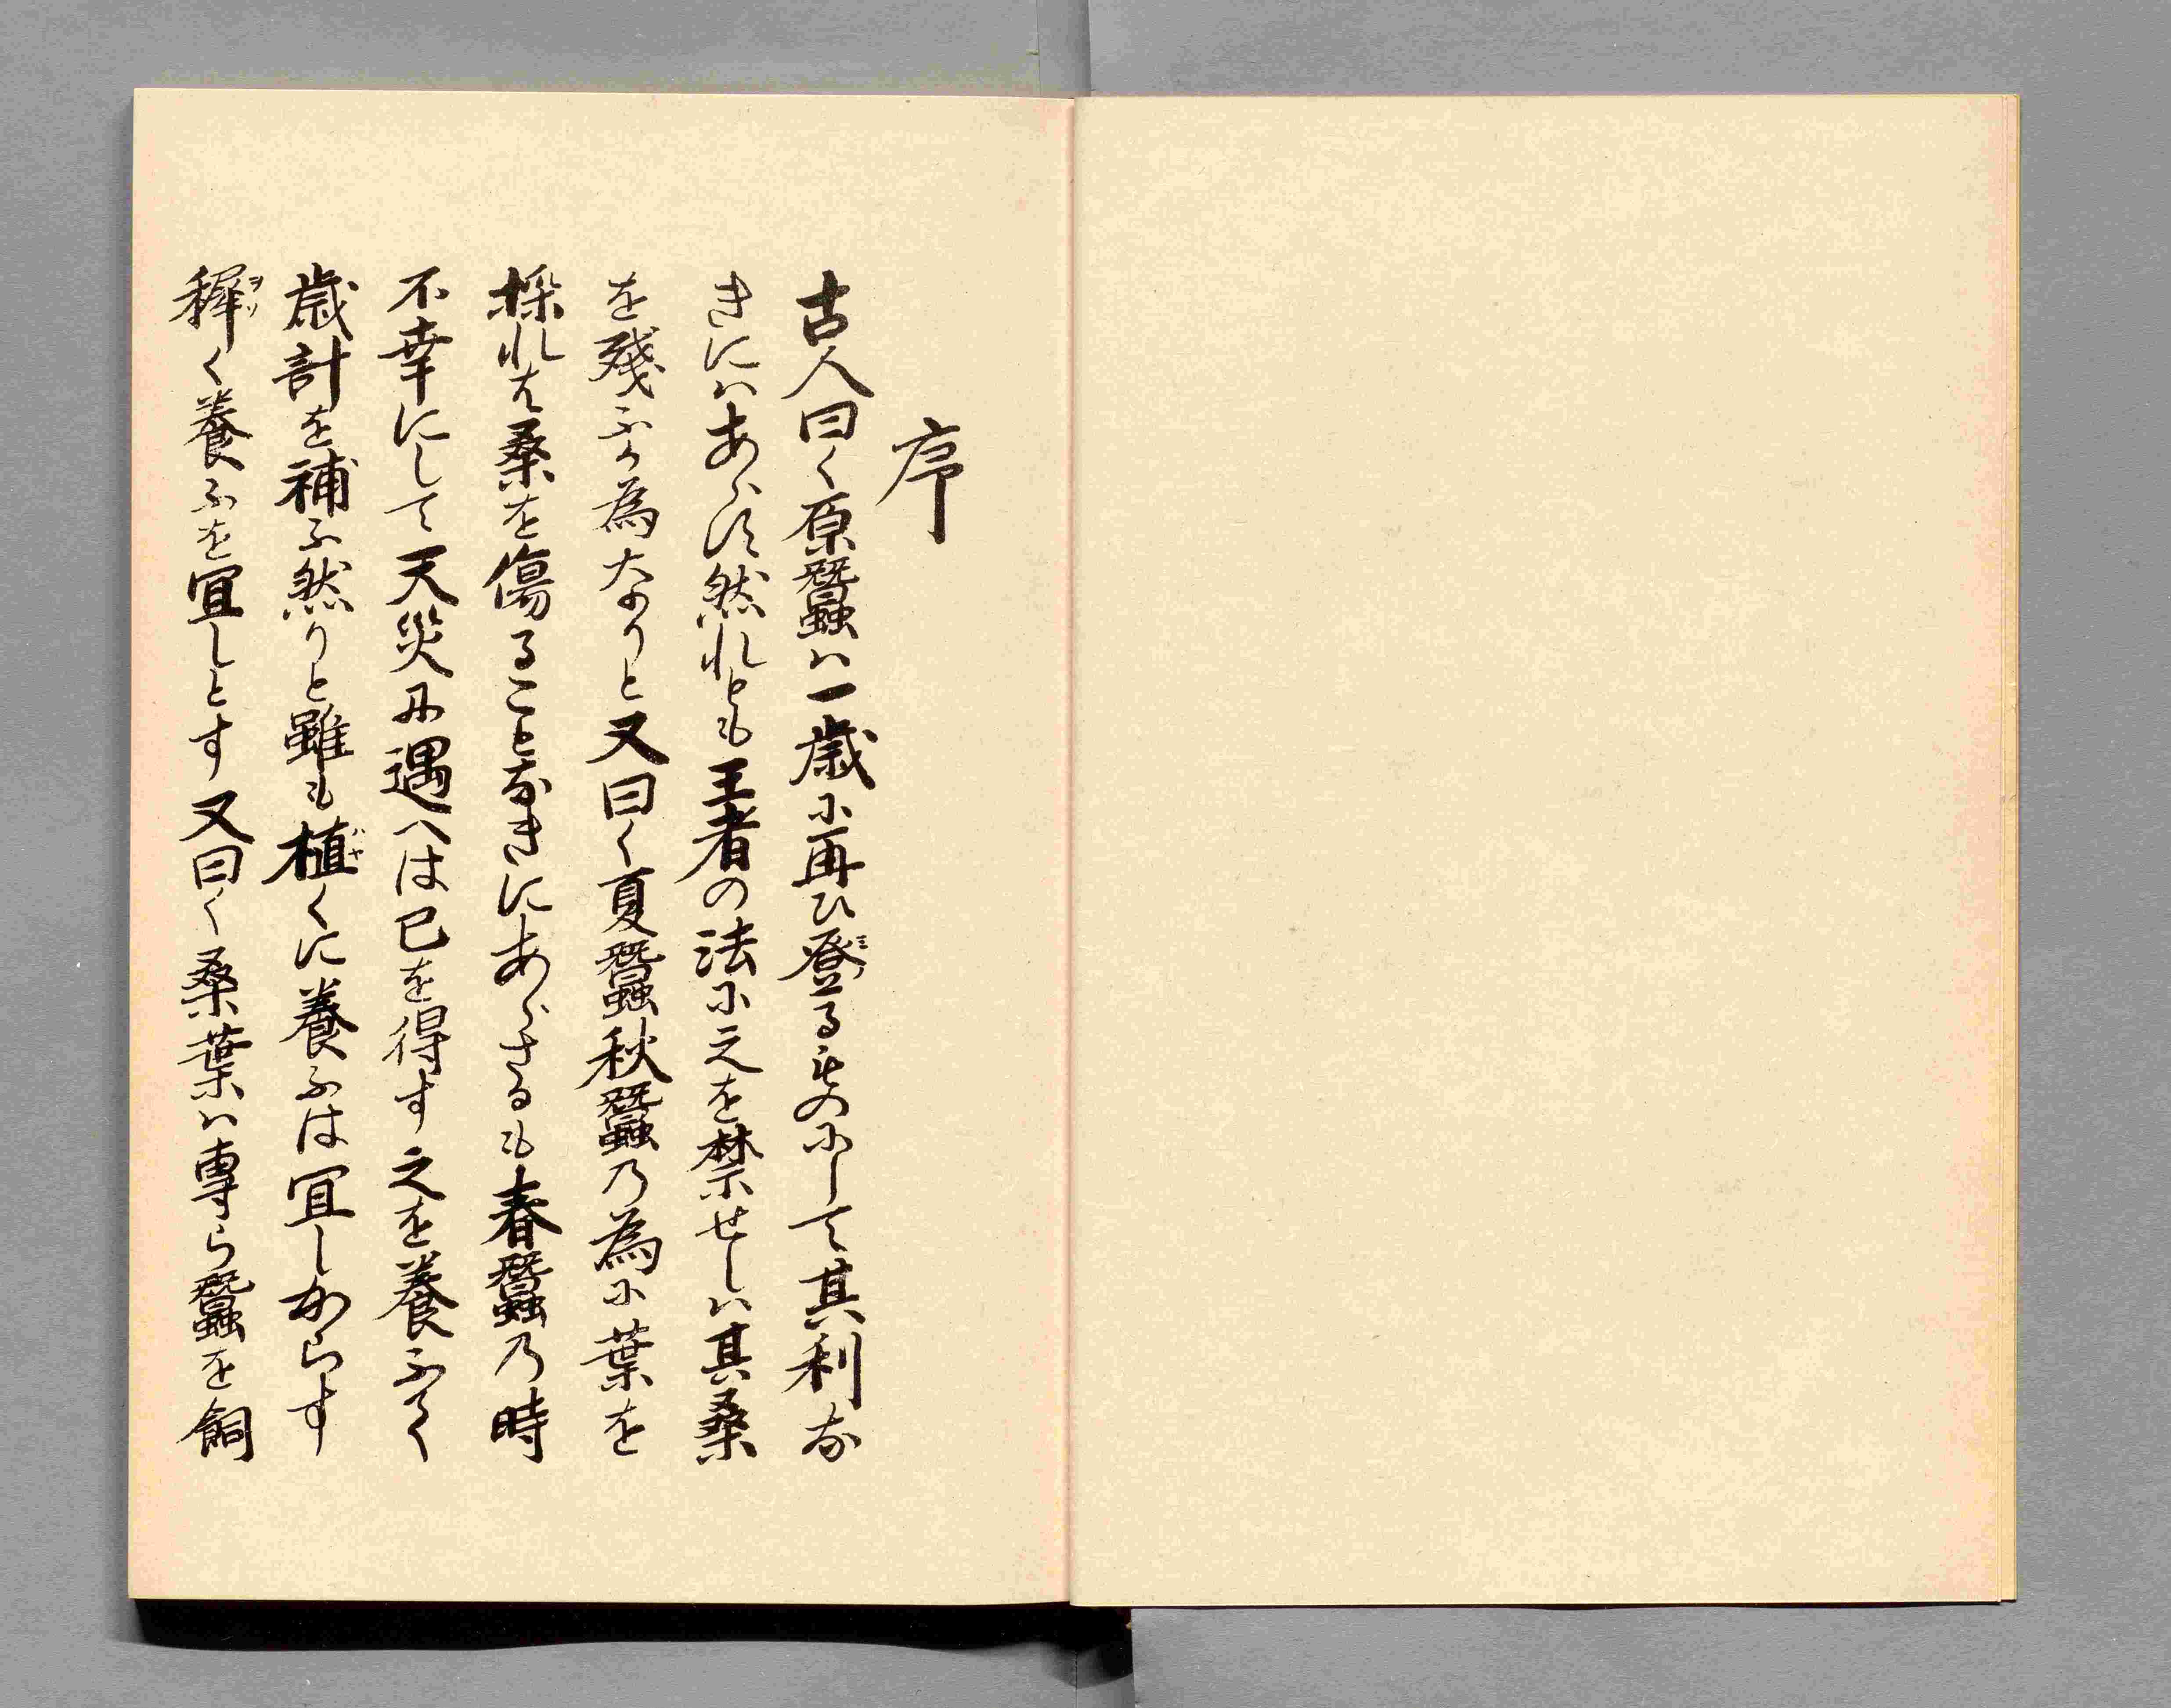 序
古人曰く原蠶ハ一歳に再ひ登るものにして其利な
きにハあらす然れとも王者の法に之を禁せしハ其桑
を残ふか為なりと又曰く夏蠶秋蠶乃為に葉を
採れは桑を傷ることなきにあらさるも春蠶乃時
不幸にして天災に遇へは已を得す之を養ふて
歳計を補ふ然りと雖も植くに養ふは宜しからす
穉く養ふを宜しとす又曰く桑葉ハ専ら蠶を飼